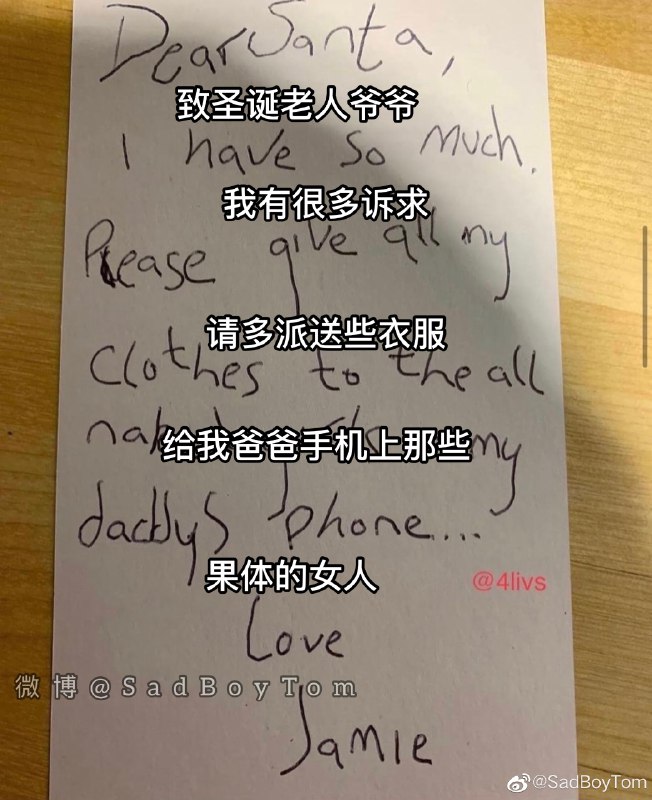 Dear Santa,
致圣诞老人爷爷
I have so much.
我有很多诉求
Please give all my
请多派送些衣服
clothes to the all
给我爸爸手机上那些
my
daddys phone....
果体的女人
@4livs
Love
微博@SadBoyTom
Jamie
@SadBoyTom